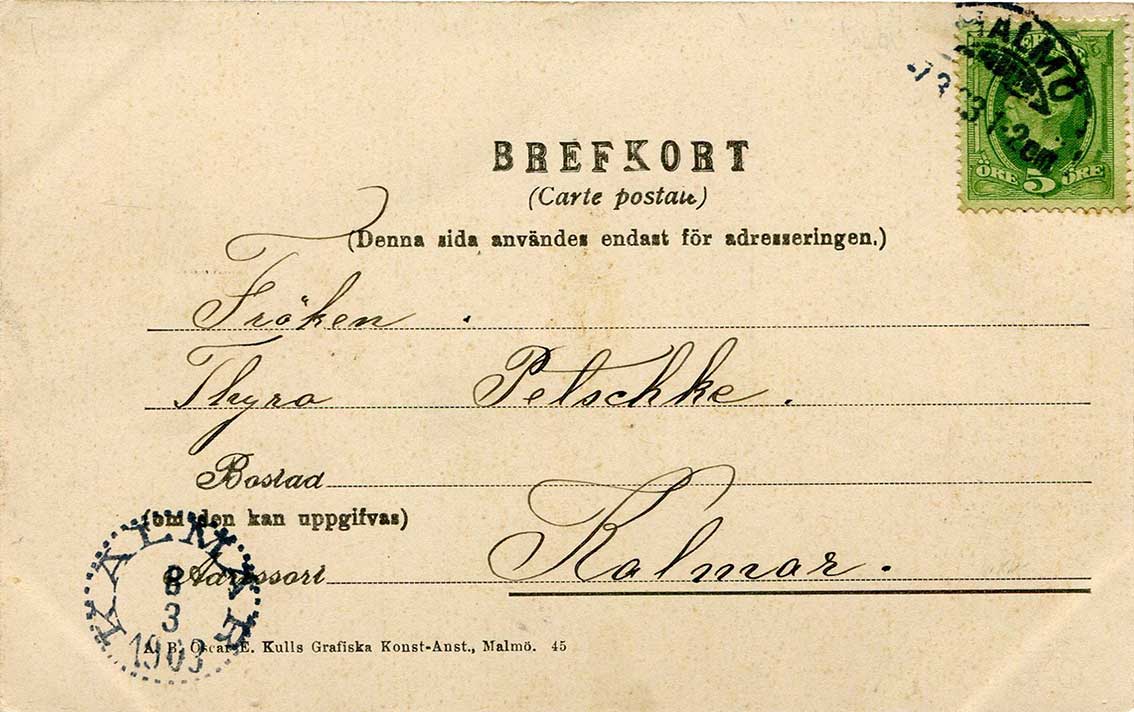 MALMÖ
BREFKORT
(Carte postale)
(Denna sida användes endast för adresseringen.)
ÖRE 5 ÖRE
Fröken
Thyra Petschke.
Bostad
(om den kan uppgifvas)
Kalmar.
Adressort
KALMAR
8
3
1903
A. B. Oscar E. Kulls Grafiska Konst-Anst., Malmö. 45